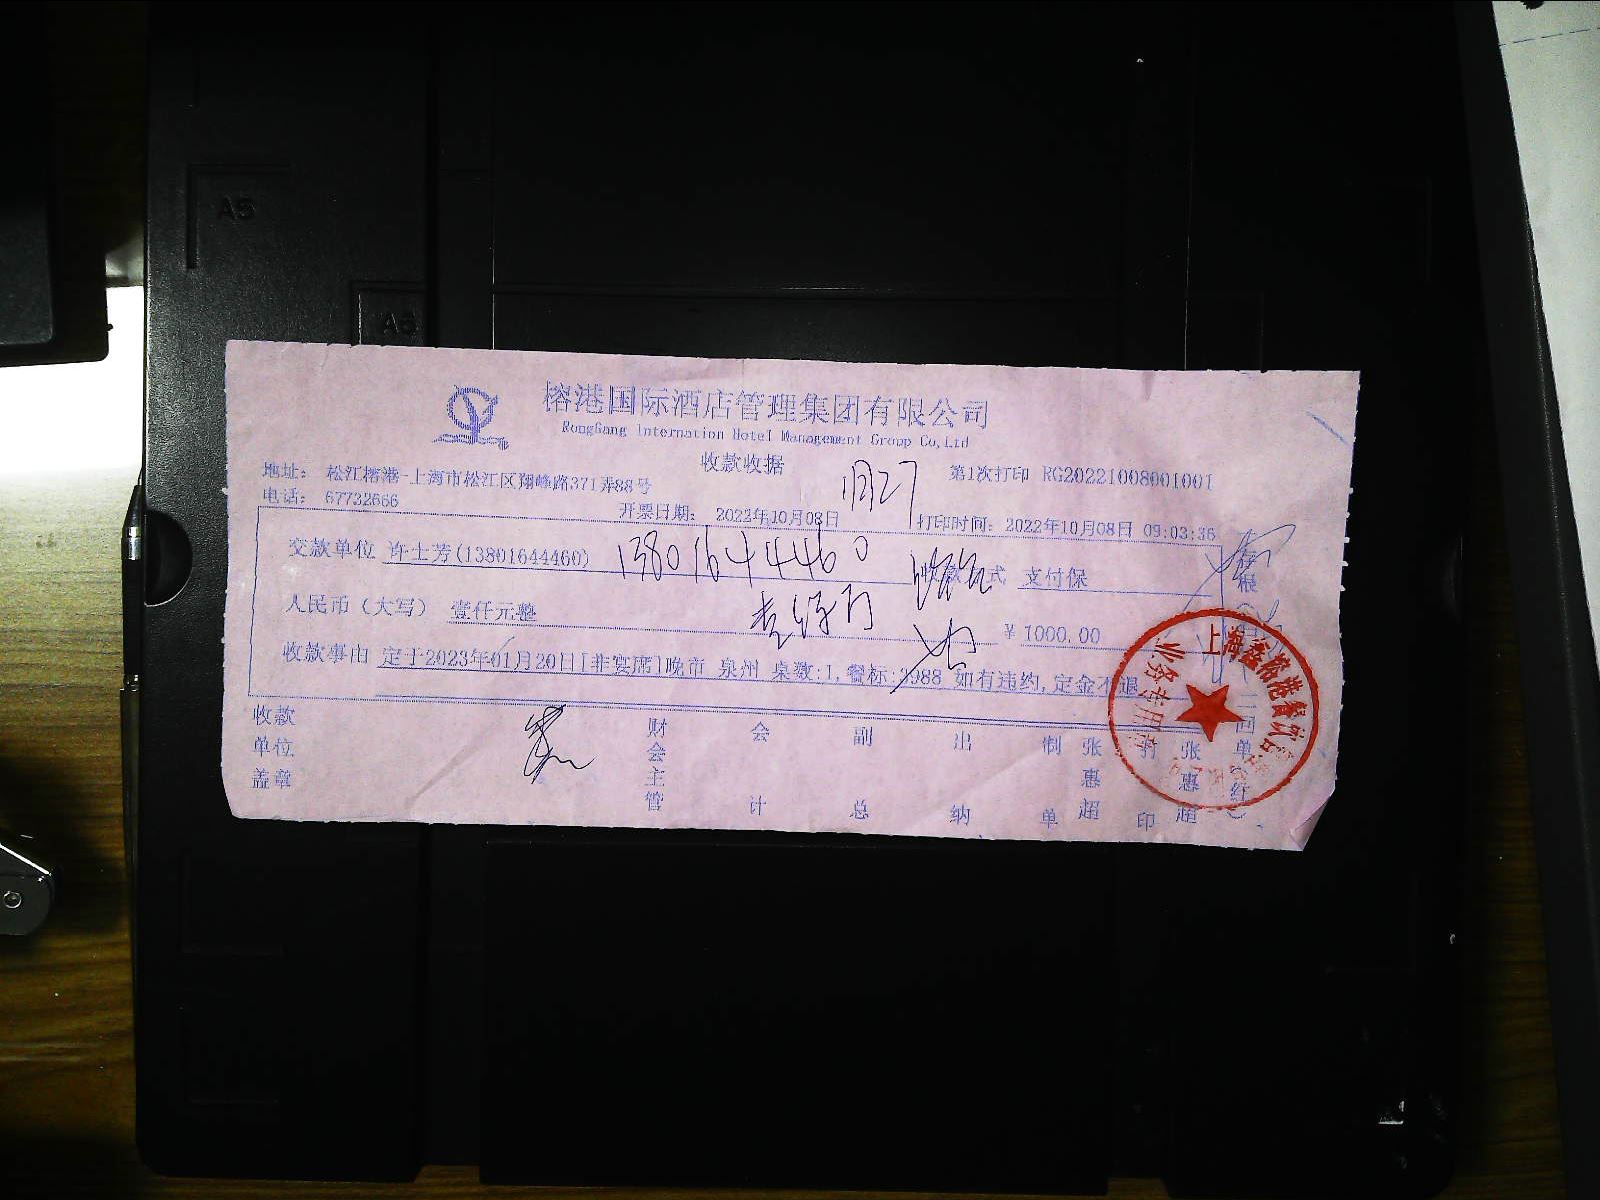 A5
A6
榕港国际酒店管理集团有限公司
RongGang Internation Hotel Management Group Co,Ltd
收款收据
1月27
第1次打印 RG202210080010​01
地址: 松江榕港-上海市松江区翔峰路371弄88号
电话: 67732666
开票日期: 2022年10月08日
打印时间: 2022年10月08日 09:03:36
交款单位 许士芳(13801644460)
13801644460
收款 式 支付保
人民币(大写) 壹仟元整
¥ 1000.00
收款事由 定于2023年01月20日[非宴席]晚市 泉州 桌数:1,餐标:3988 如有违约,定金不退
收款单位盖章
财会主管
会计
副总
出纳
制单
张惠超
打印
张惠超
存根
二回单
红
上海鑫榕港餐饮
业务专用章